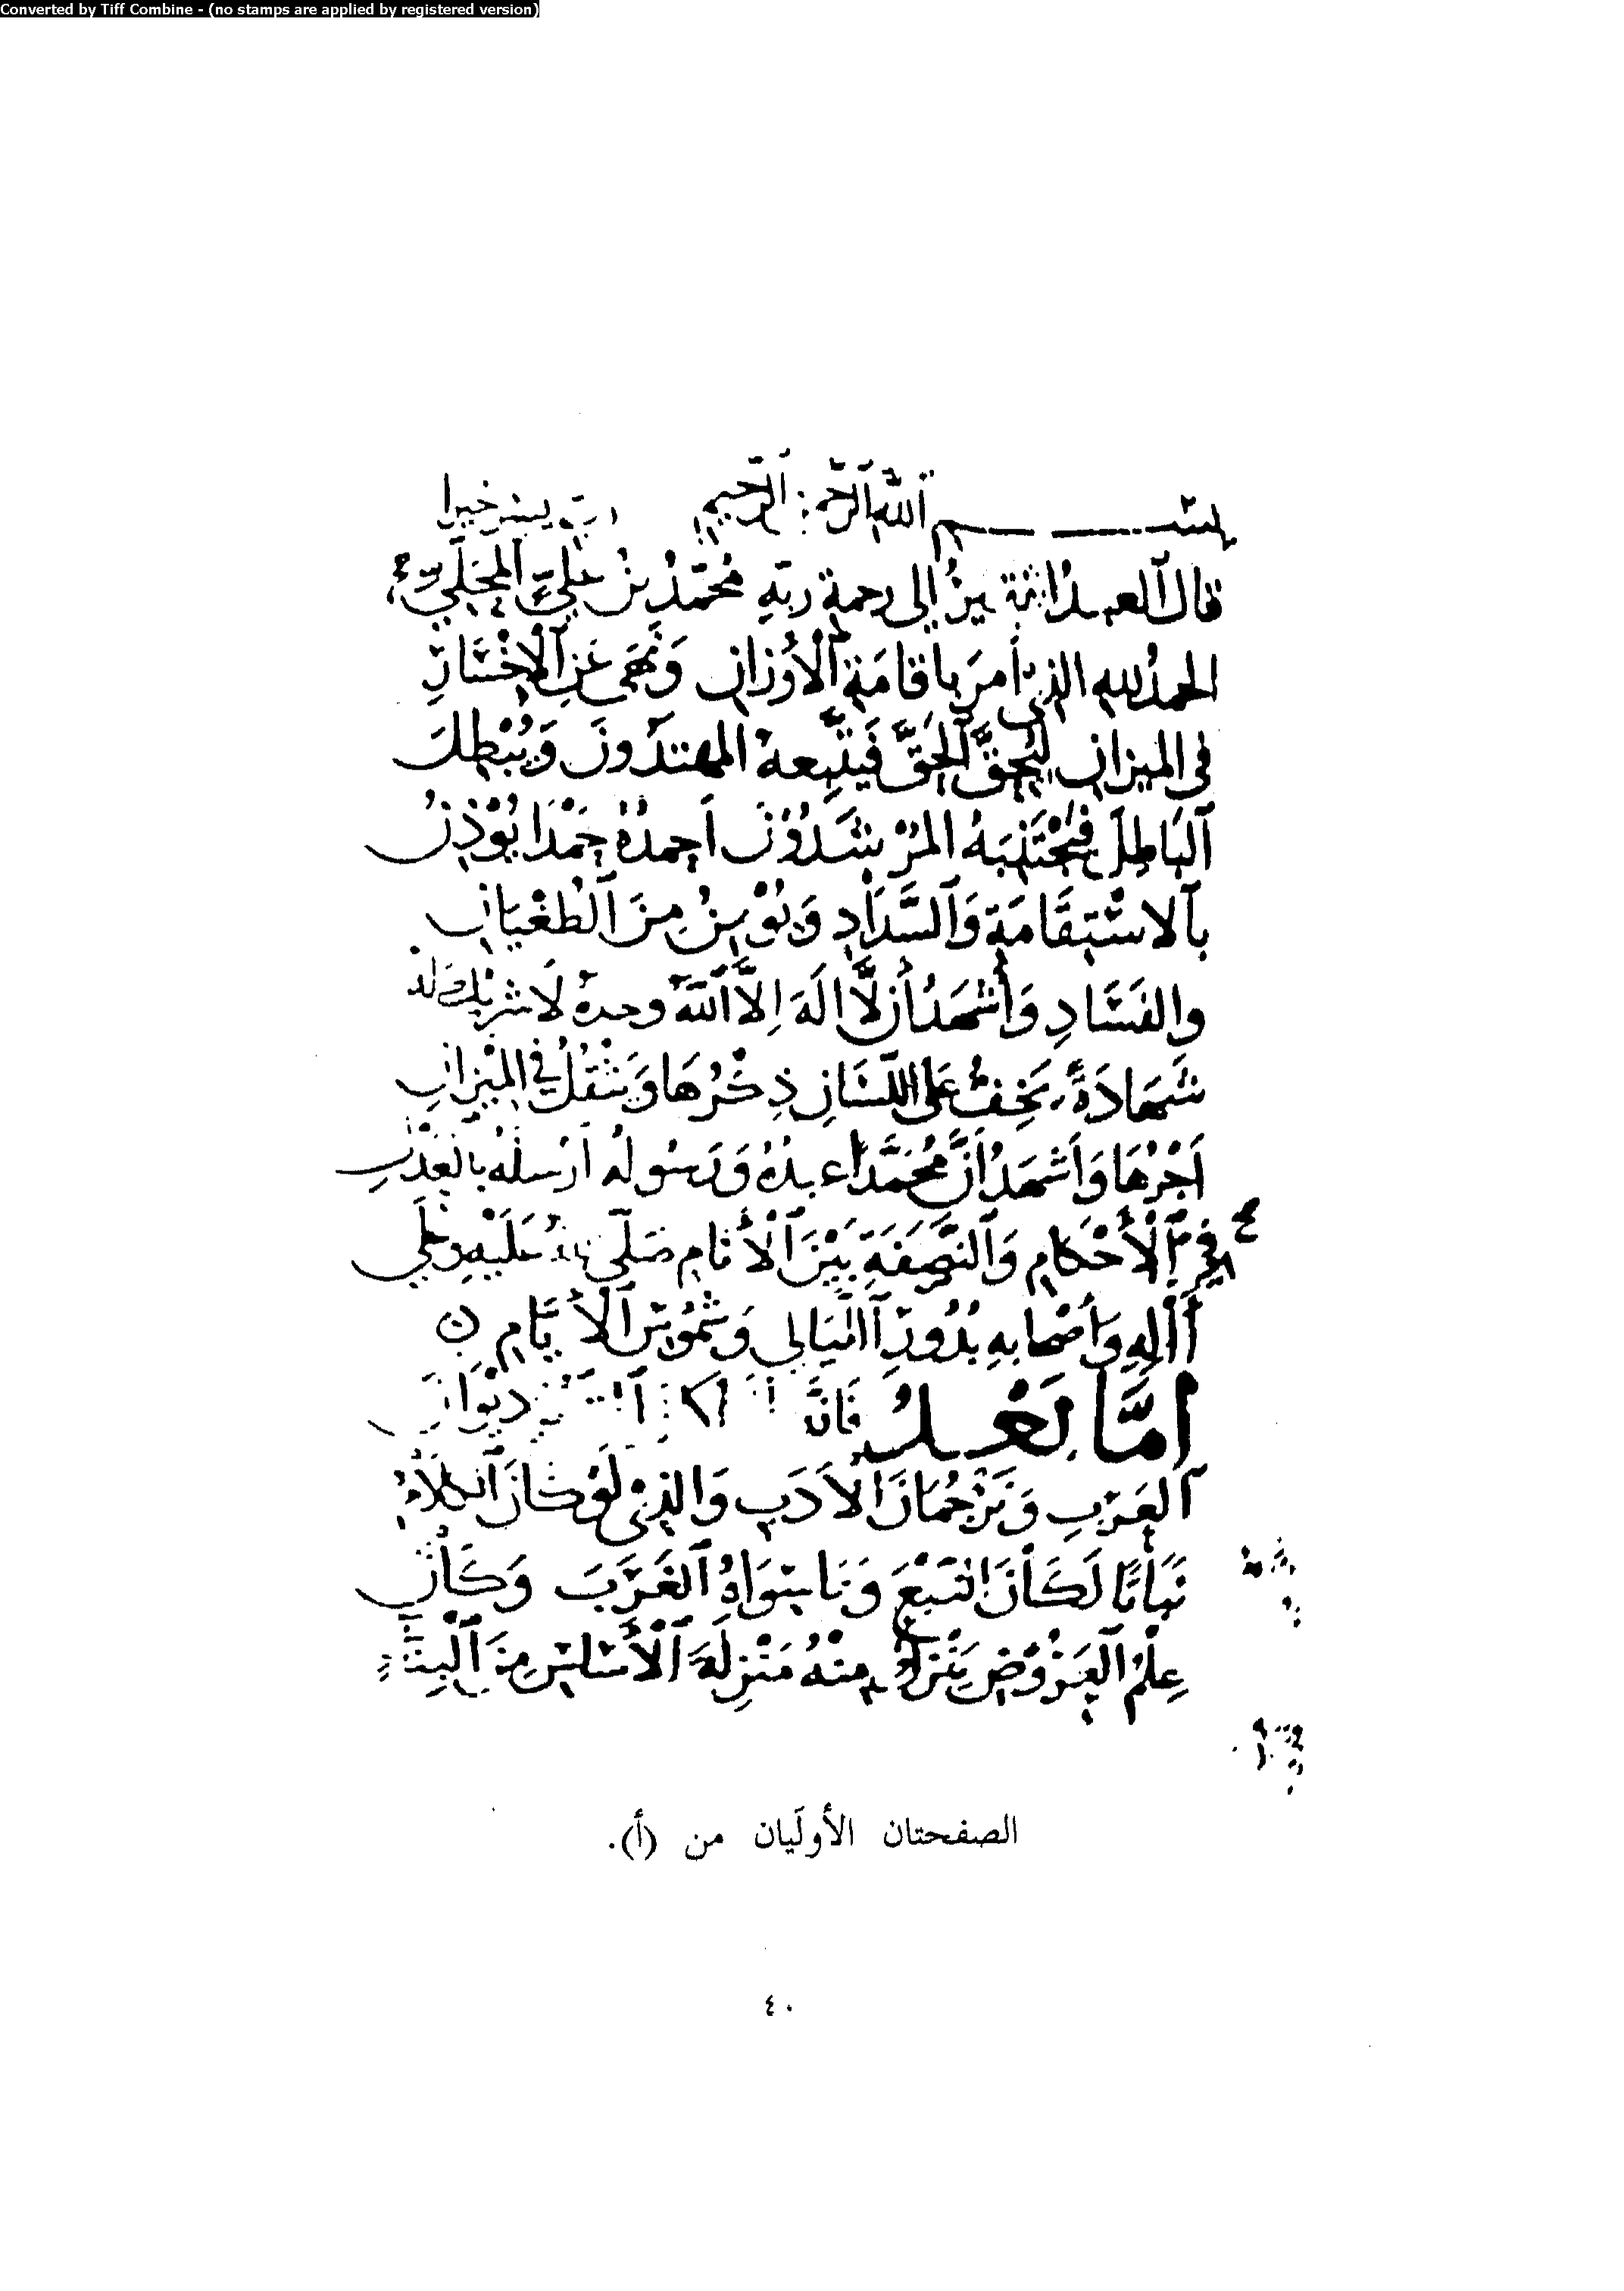 Converted by Tiff Combine - (no stamps are applied by registered version)
بسم اللَّه الرَّحمن الرَّحيم رب يسر خيرا
قال العبد إلى رحمة ربّه محمّد بن عليّ المحلّيّ
الحمد لله الذي أمرَ بإقامَة الأوزان وَنهَى عَنِ الإخسَار
في الميزان ليُحِقَّ الحَقَّ فَيتّبعهُ المهتدُونَ وَيُبْطِلَ
البَاطِلَ فَيَجْتَنِبَهُ المسترشدُونَ أحمدهُ حَمْدًا يُؤذِنُ
بالاسْتِقَامَةِ وَالسَّدَادِ وَيُؤمِنُ مِنَ الطُغْيَانِ
والفَسَادِ وَأشهَدُ أن لَّا إلَهَ إلَّا اللَّهُ وحدهُ لَا شريكَ لهُ
شَهَادَةً يَخِفُّ عَلَى اللِّسَانِ ذِكْرُهَا وَيَثْقُلُ فِي المِيْزَانِ
أَجْرُهَا وَأشهَدُ أنَّ مُحَمَّدًا عبدُهُ وَرَسُولُهُ أرْسلَهُ بالعَدْلِ
فِي الأحْكَامِ وَالنَّصَفَةِ بَيْنَ الأنَام صَلّى الله عَلَيْهِ وعَلَى
آلِهِ وَأصْحَابِهِ بُدُورِ اللَّيَالِي وَشُمُوسِ الأيَّامِ
أمَّا بَعْدُ فَانَّ ديْوَانُ
العَرَبِ وَتَرْجُمَانُ الأدَبِ وَالذِي لَوْ كَانَ الكَلَامُ
نَبَاتًا لَكَانَ النَبْعَ وَمَا سِوَاهُ الغَرَبَ وَكَانَ
عِلْمُ العَرُوْضِ يَنْزِلُ مِنْهُ مَنْزِلَةَ الأسَاسِ مِنَ البِنَاءِ
الصفحتان الأولَيان من (أ).
٤٠